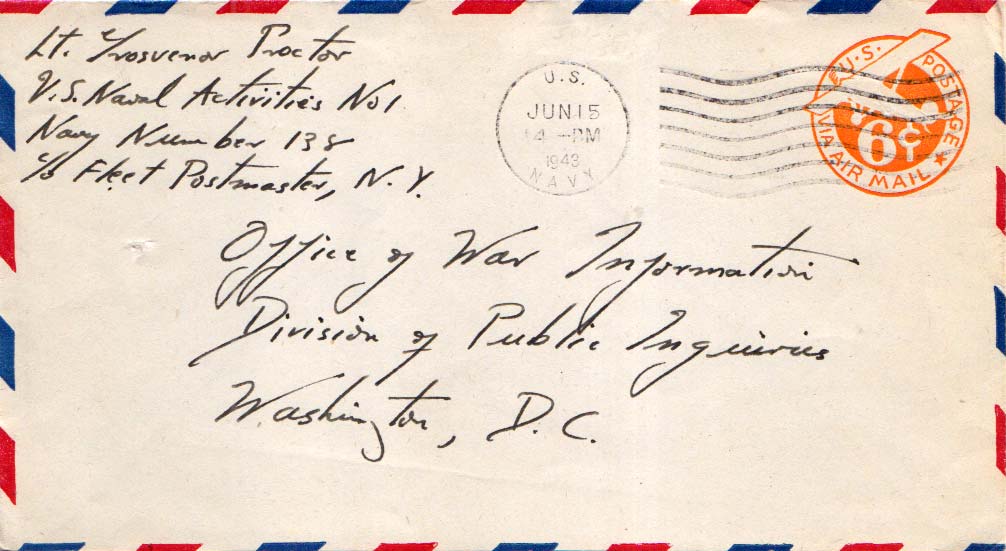 Lt. Grosvenor Proctor
U.S. Naval Activities No 1
Navy Number 138
c/o Fleet Postmaster, N.Y.
U.S.
JUN 15
4 -PM
1943
NAVY
U.S. POSTAGE
6¢
VIA AIR MAIL
Office of War Information
Division of Public Inquiries
Washington, D.C.